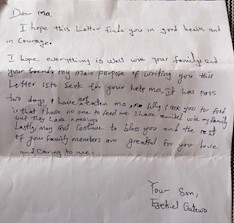 Dear Ma,
I hope this Letter finds you in good health and
in Courage.
I hope everything is well with your family and
your friends my main purpose of writing you this
Letter is to Seek for your help ma. It has pass
two days, I have not eaten ma. Why I ask you to feed
is that there's no one to feed me. I have
but they have nothing
Lastly, may God continue to bless you and the rest
of your family members am greatful for your love
and Caring to me.
Your Son,
Ezekiel